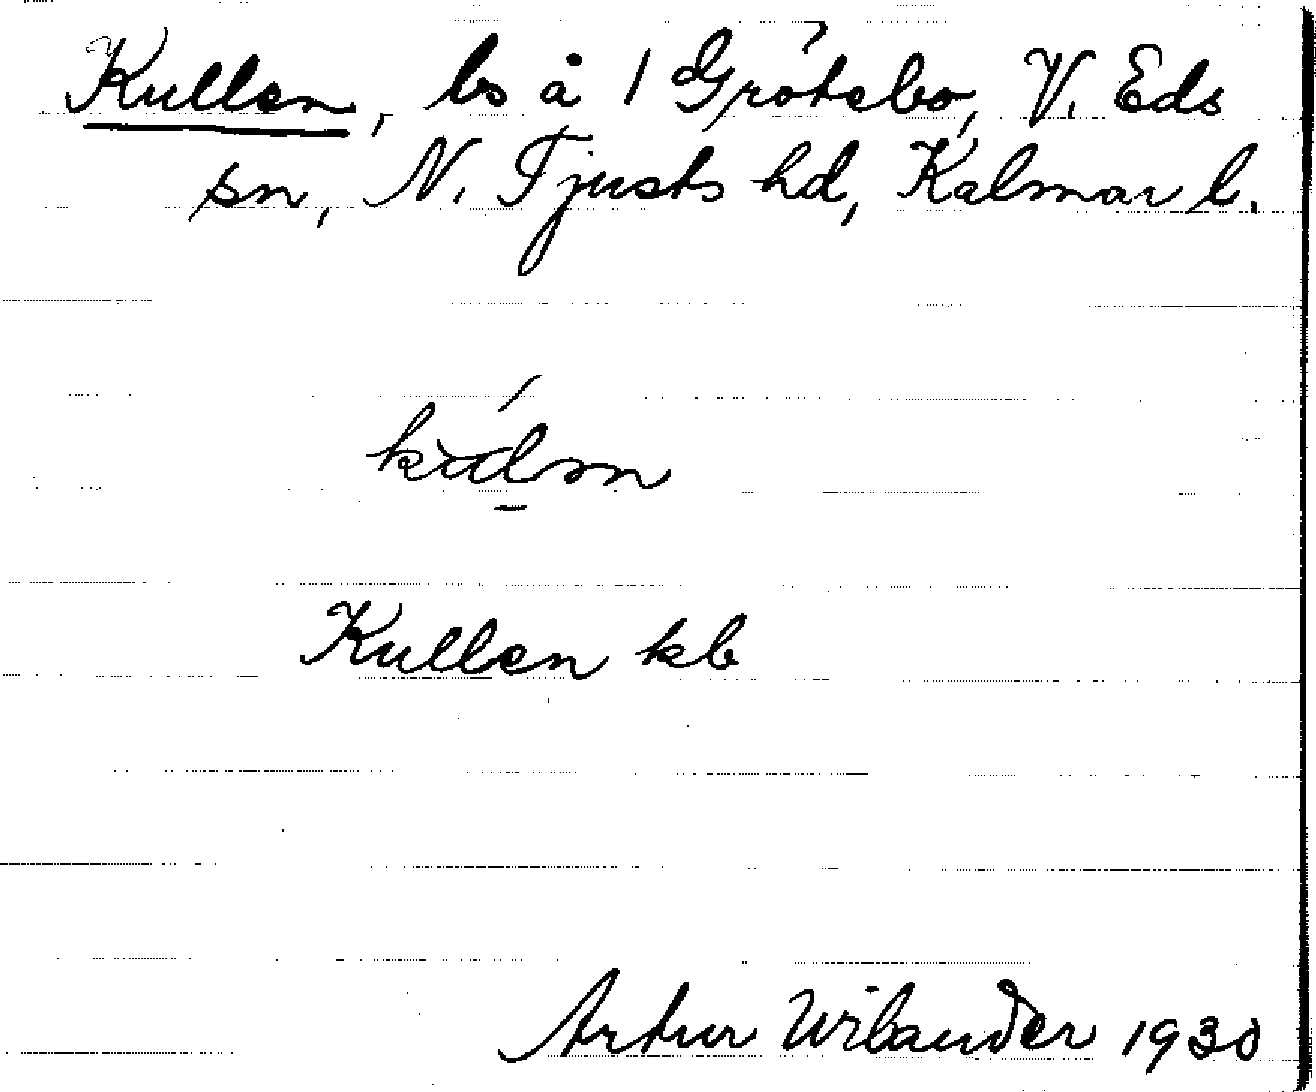 Kullen, bs å 1 Grötebo, V. Eds
sn, N. Tjusts hd, Kalmar l.
Kullen kb
Artur Wilander 1930